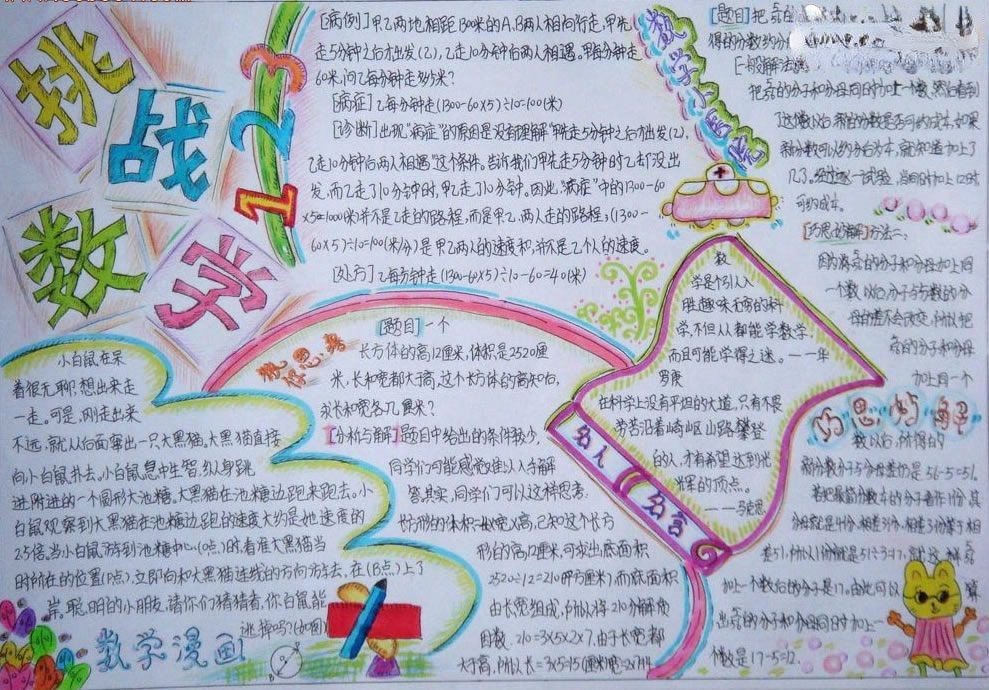 挑战数学
123
[病例]甲乙两地相距1300米的A.B两人相向行走,甲先
走5分钟之后才出发(乙),乙走10分钟后两人相遇。甲每分钟走
60米,问乙每分钟走多少米?
[病症]乙每分钟走(1300-60×5)÷10=100(米)
[诊断]出现"病症"的原因是没有理解"甲先走5分钟之后才出发(乙),
乙走10分钟后两人相遇"这个条件。当甲先走5分钟时乙没出
发,而乙走了10分钟时,甲乙走了10分钟。因此,"病症"中的1300-60
×5=1000(米)并不是乙走的路程,而是甲乙两人的路程,(1300-
60×5)÷10=100(米/分)是甲乙两人的速度和,并不是乙个人的速度。
[处方]乙每分钟走(1300-60×5)÷10-60=40(米)
数学小医院
[题目]把
得的分数约分
[一般解法]
把 的分子和分母同时加上一个数,然后看到
了这个数以后,新的分数是否可约成 ,如果
新分数可以约分为 ,就知道加上了
几了。经过逐一试验,当同时加上12时,
可约成 。
[巧思妙解]方法二:
因为将 的分子和分母加上同
一个数以后,分子与分母的分
母的差不会改变,所以把
的分子和分母
加上同一个
巧思妙解
数以后,所得的
新分数分子与分母差仍是56-5=51。
若把最简分数 的分子看作1份,其
分母就是4份,相差3份,相差3份等于相
差51,所以1份就是51÷3=17,就这样
加上一个数后的分子是17。由此可以算
出 的分子和分母同时加上一
个数是17-5=12。
数
学是个引人入
胜,趣味无穷的科
学,不但人人都能学数学,
而且可能学得之迷。——华
罗庚
在科学上没有平坦的大道,只有不畏
劳苦沿着崎岖山路攀登
的人,才有希望达到光
辉的顶点。
——马克思
名人名言
[题目]一个
长方体的高12厘米,体积是2520厘
米,长和宽都大于高,这个长方体的高知后,
求长和宽各几厘米?
[分析与解]题目中给出的条件较少,
同学们可能感觉难以入手解
答。其实,同学们可以这样思考:
长方形的体积=长×宽×高,已知这个长方
形的高12厘米,可求出底面积
2520÷12=210(平方厘米),而底面积
由长宽组成,所以将210分解质
因数。210=3×5×2×7,由于长宽都
大于高,所以长=3×5=15(厘米)宽=2×7=14
小白鼠在呆
着很无聊,想出来走
一走。可是,刚走出来
不远,就从后面窜出一只大黑猫。大黑猫直接
向小白鼠扑去,小白鼠急中生智,纵身跳
进附近的一个圆形大池塘,大黑猫在池塘边跑来跑去。小
白鼠观察到大黑猫在池塘边跑的速度大约是她速度的
2.5倍。当小白鼠游到池塘中心(O点)时,看准大黑猫当
时所在的位置(P点),立即向和大黑猫连线的方向游去,在(B点)上了
岸。聪明的小朋友,请你们猜猜看,你白鼠能
逃掉吗?(如图)
数学漫画